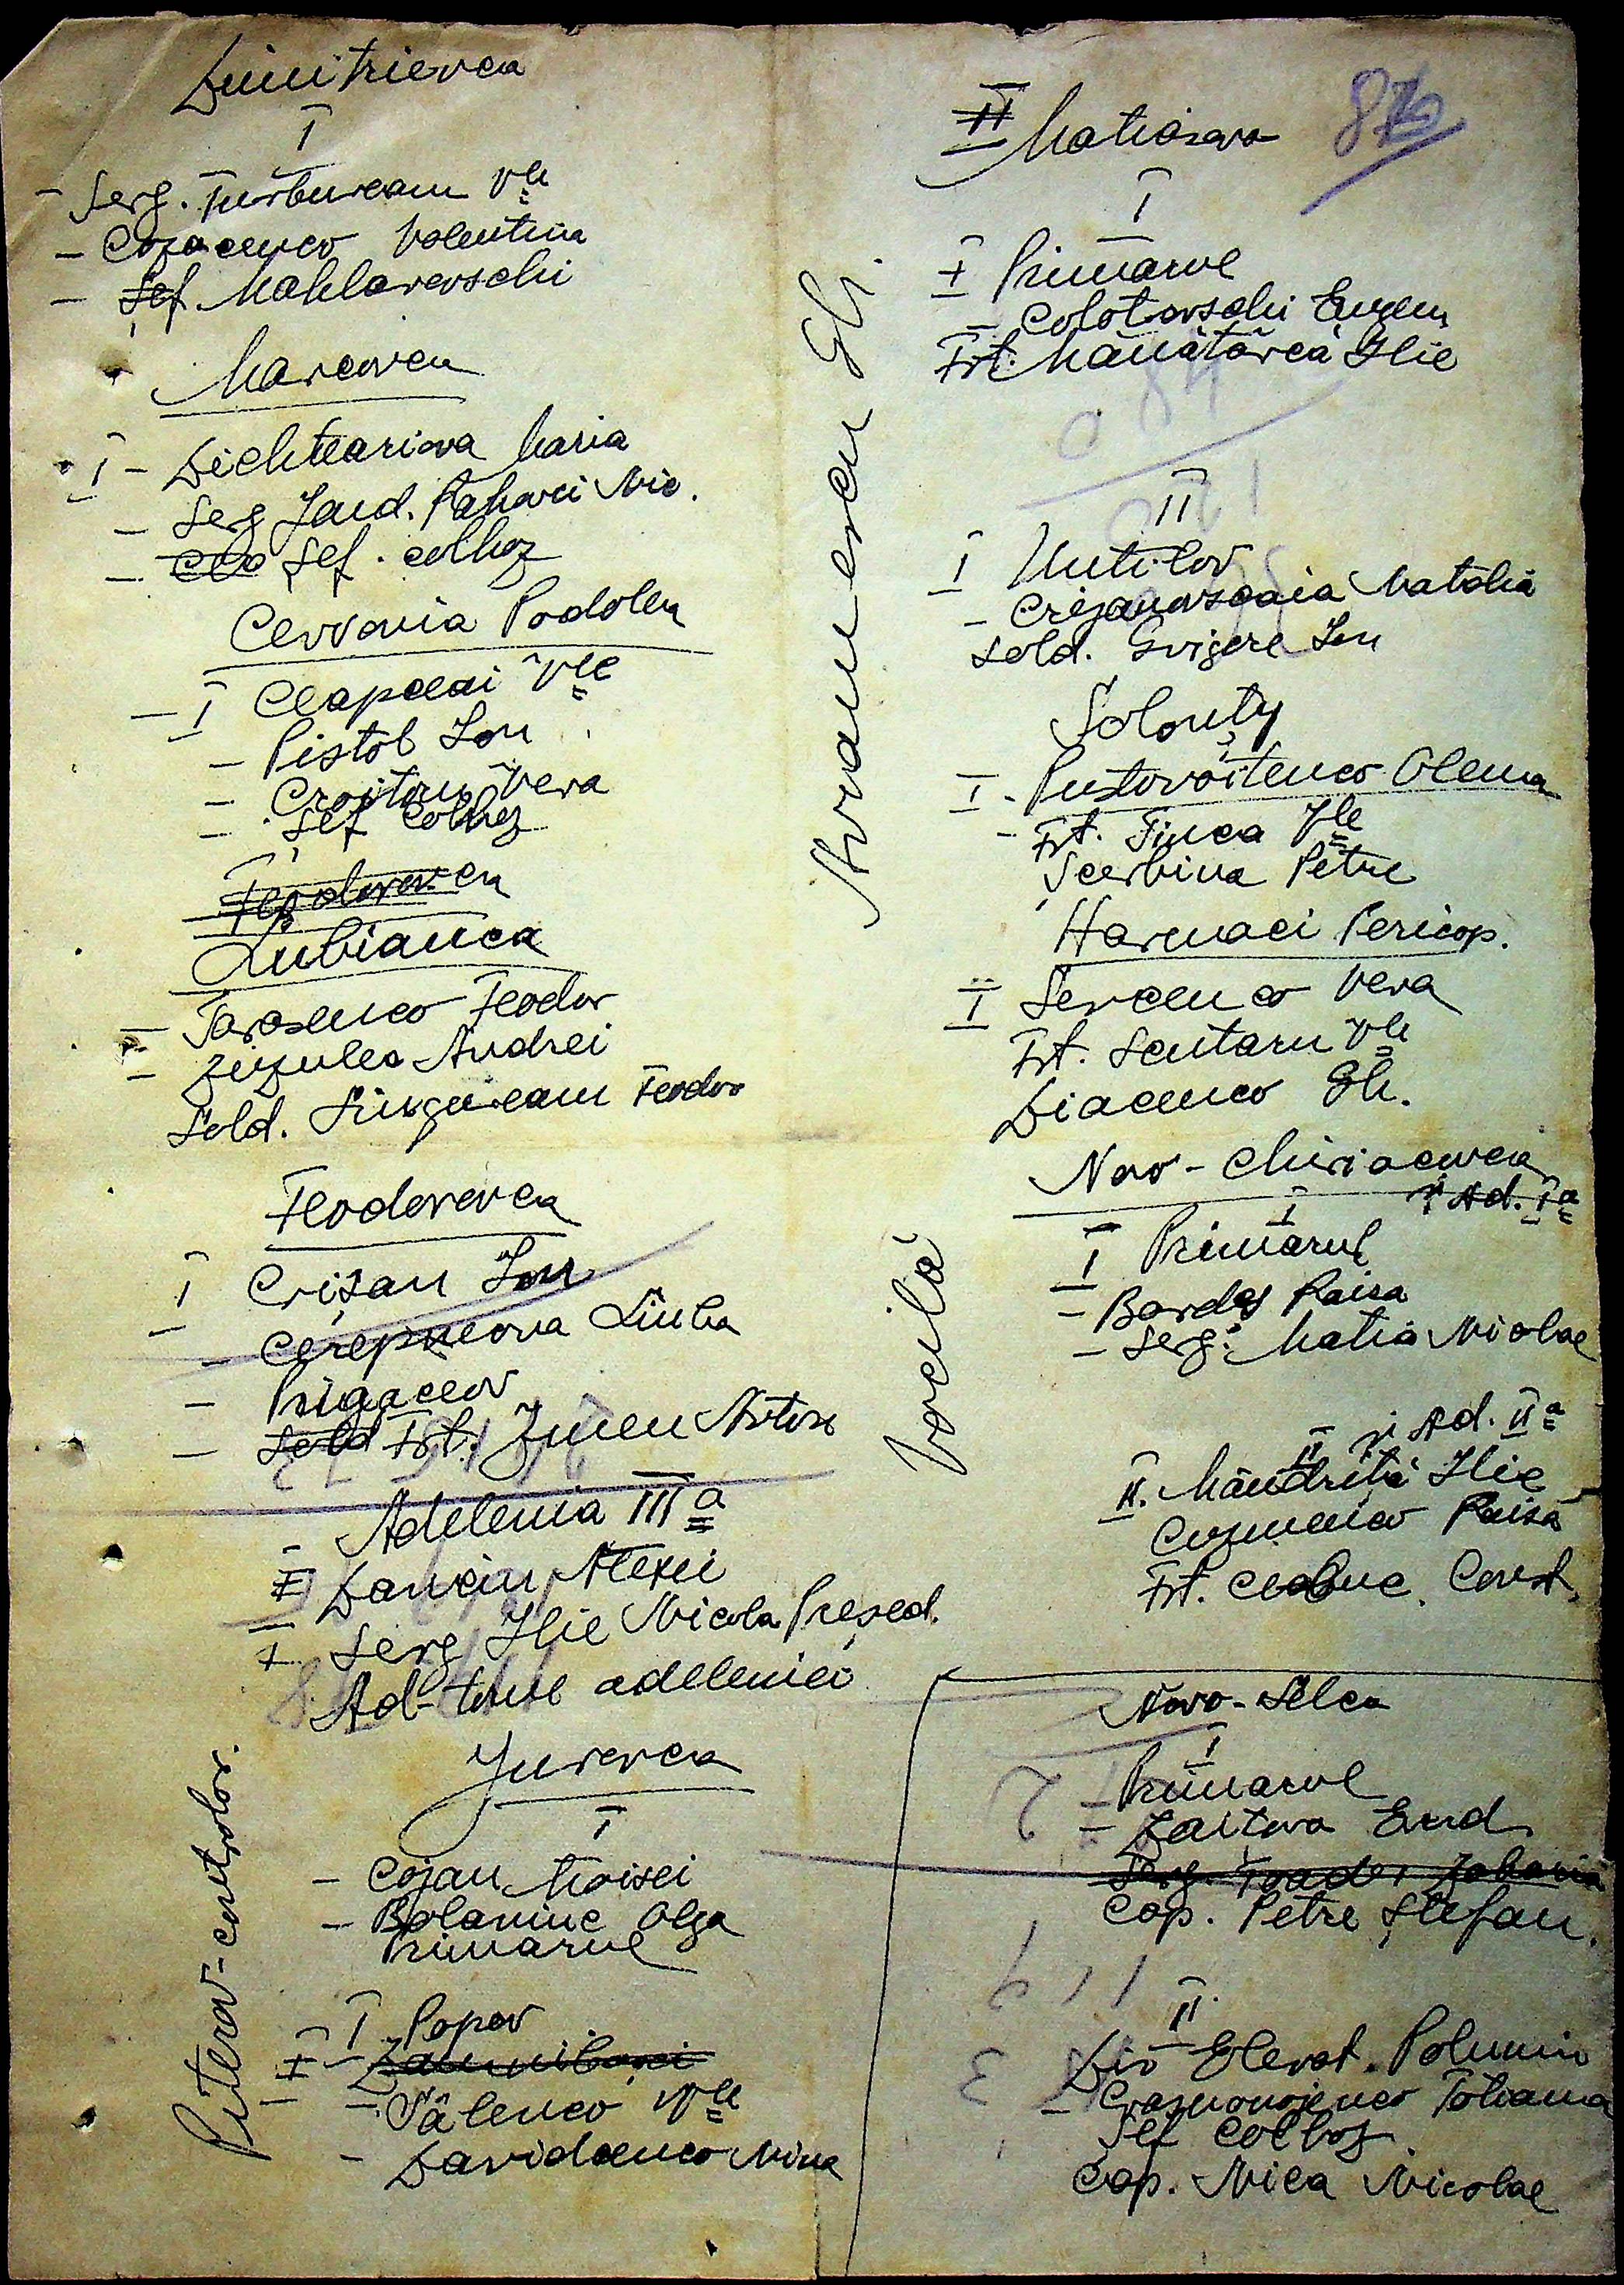 Dimitrievca
I
- Serg. Turbureanu Vle
- Cozacenco Valentina
- Șef. Mahlarevschi
Marcovca
I - Dichteariova Maria
- Serg Jand. Pahomi Nic.
- Șef. colhoz
Cervonia Podolea
- I Ceapceai Vle
- Pistol Ion
- Croitoru Vera
- Șef Colhoz
Feodorovca
Liubianca
- Tarasenco Feodor
- Zuzulea Andrei
Sold. Lungureanu Teodor
Feodorovca
I Crișan Ion
- Cerepneova Liuba
- Prigaceov
- Sold Frt. Zmeu Anton
Adelenia IIIa
I Danciu Alexei
I Serg Ilie Nicola Președ.
Ad-torul adeleniei
Jurevca
I
- Cojan Moisei
- Bolaniuc Olga
Primarul
I Popov
I -
- Tălenco Vle
- Davidcenco Nina
Piterov-controlor.
Avramescu Gh.
Vocilă
II Matiasova
87
I
I Primarul
- Colotovschi Eugen
Frt. Mănătărcă Ilie
II
I Hutilov
- Crijanovscaia Natalia
Sold. Grigore Ion
Solonți
I - Pustovoitenco Olena
- Frt. Tinca Vle
Șcerbina Petre
Harmaci Pericop.
I Sevcenco Vera
Frt. Scutaru Vle
Diacenco Gh.
Novo-Chiriacovca
și Ad. Ia
I
I Primarul
- Bordas Raisa
- Serg. Matia Nicolae
II și Ad. IIa
II. Mândrită Ilie
Cuzmenco Raisa
Frt. Const.
Novo-Selca
I
- Primarul
- Zaitova Eud.
Serg. Toader Zaharia
Cap. Petre Ștefan.
II
Dir Elevat. Polunin
- Crasnonojenco Tatiana
Șef Colhoz
Cap. Nica Nicolae